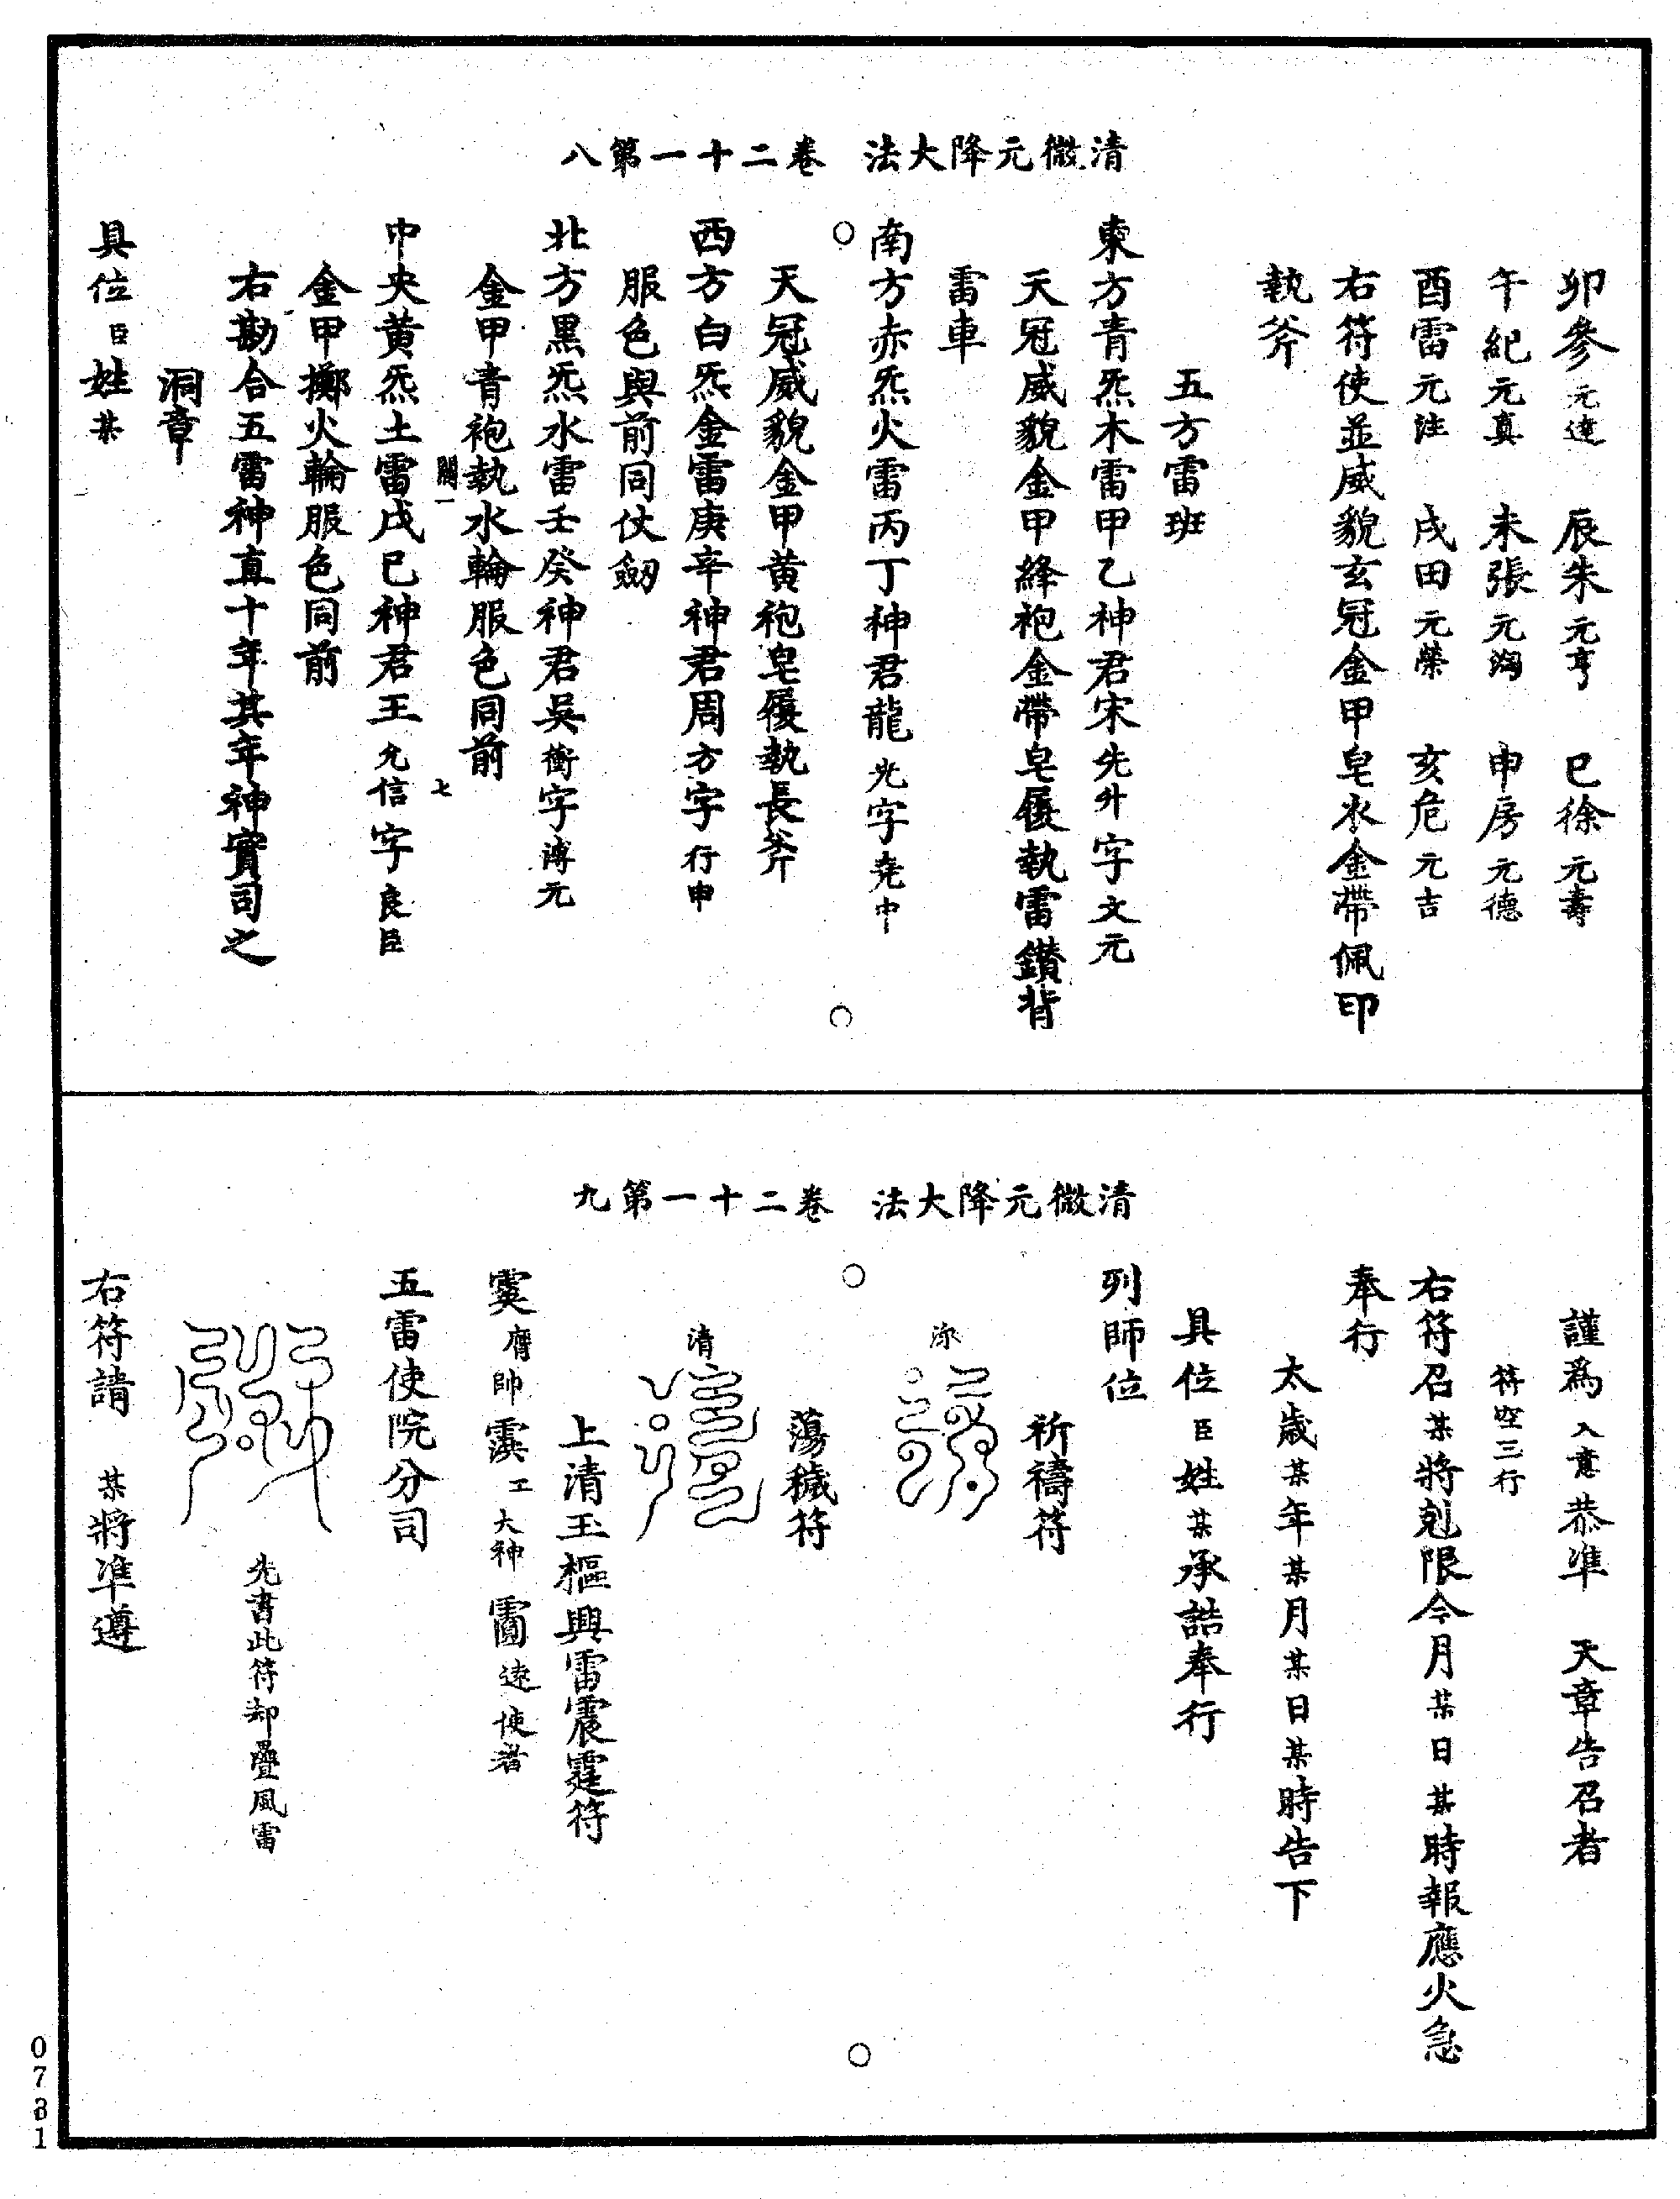 清微元降大法 卷二十一第八
卯參元達 辰朱元亨 巳徐元壽
午紀元真 未張元淘 申房元德
酉雷元注 戌田元榮 亥危元吉
右符使並威貌玄冠金甲皂衣金帶佩印
執斧
五方雷班
東方青炁木雷甲乙神君宋先升字文元
天冠威貌金甲絳袍金帶皂履執雷鑽背
雷車
南方赤炁火雷丙丁神君龍光字堯中
天冠威貌金甲黃袍皂履執長斧
西方白炁金雷庚辛神君周方字行申
服色與前同仗劒
北方黑炁水雷壬癸神君吳衝字溥元
金甲青袍執水輪服色同前
關一 七
中央黃炁土雷戊巳神君王允信字良臣
金甲擲火輪服色同前
右勘合五雷神直十年其年神實司之
洞章
具位臣姓某
清微元降大法 卷二十一第九
謹爲入意恭準 天章告召者
符空三行
右符召某將剋限今月某日某時報應火急
奉行
太歲某年某月某日某時告下
具位臣姓某承誥奉行
列師位
祈禱符
蕩穢符
清
上清玉樞興雷震霆符
帥 大神 使者
五雷使院分司
先書此符却疊風雷
右符請 某將準遵
0731